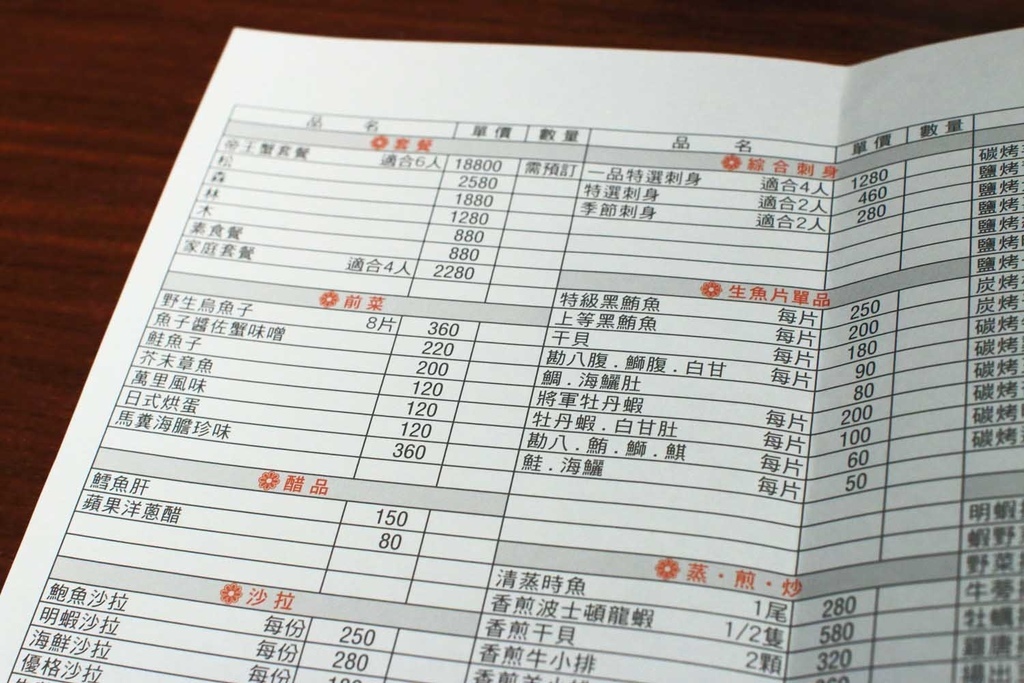 品 名 單價 數量
套餐
帝王蟹套餐 適合6人 18800 需預訂
松 2580
森 1880
林 1280
木 880
素食餐 880
家庭套餐 適合4人 2280
前菜
野生烏魚子 8片 360
魚子醬佐蟹味噌 220
鮭魚子 200
芥末章魚 120
萬里風味 120
日式烘蛋 120
馬糞海膽珍味 360
醋品
鱈魚肝 150
蘋果洋蔥醋 80
沙拉
鮑魚沙拉 每份 250
明蝦沙拉 每份 280
海鮮沙拉 每份
優格沙拉 每份
品 名 單價 數量
綜合刺身
一品特選刺身 適合4人 1280
特選刺身 適合2人 460
季節刺身 適合2人 280
生魚片單品
特級黑鮪魚 每片 250
上等黑鮪魚 每片 200
干貝 每片 180
勘八腹.鰤腹.白甘 每片 90
鯛.海鱺肚 80
將軍牡丹蝦 每片 200
牡丹蝦.白甘肚 每片 100
勘八.鮪.鰤.鯕 每片 60
鮭.海鱺 每片 50
蒸·煎·炒
清蒸時魚 1尾 280
香煎波士頓龍蝦 1/2隻 580
香煎干貝 2顆 320
香煎牛小排
碳烤
鹽烤
鹽烤
鹽烤
鹽烤
鹽烤
炭烤
炭烤
碳烤
碳烤
碳烤
碳烤
碳烤
明蝦
蝦野
野菜
牛蒡
牡蠣